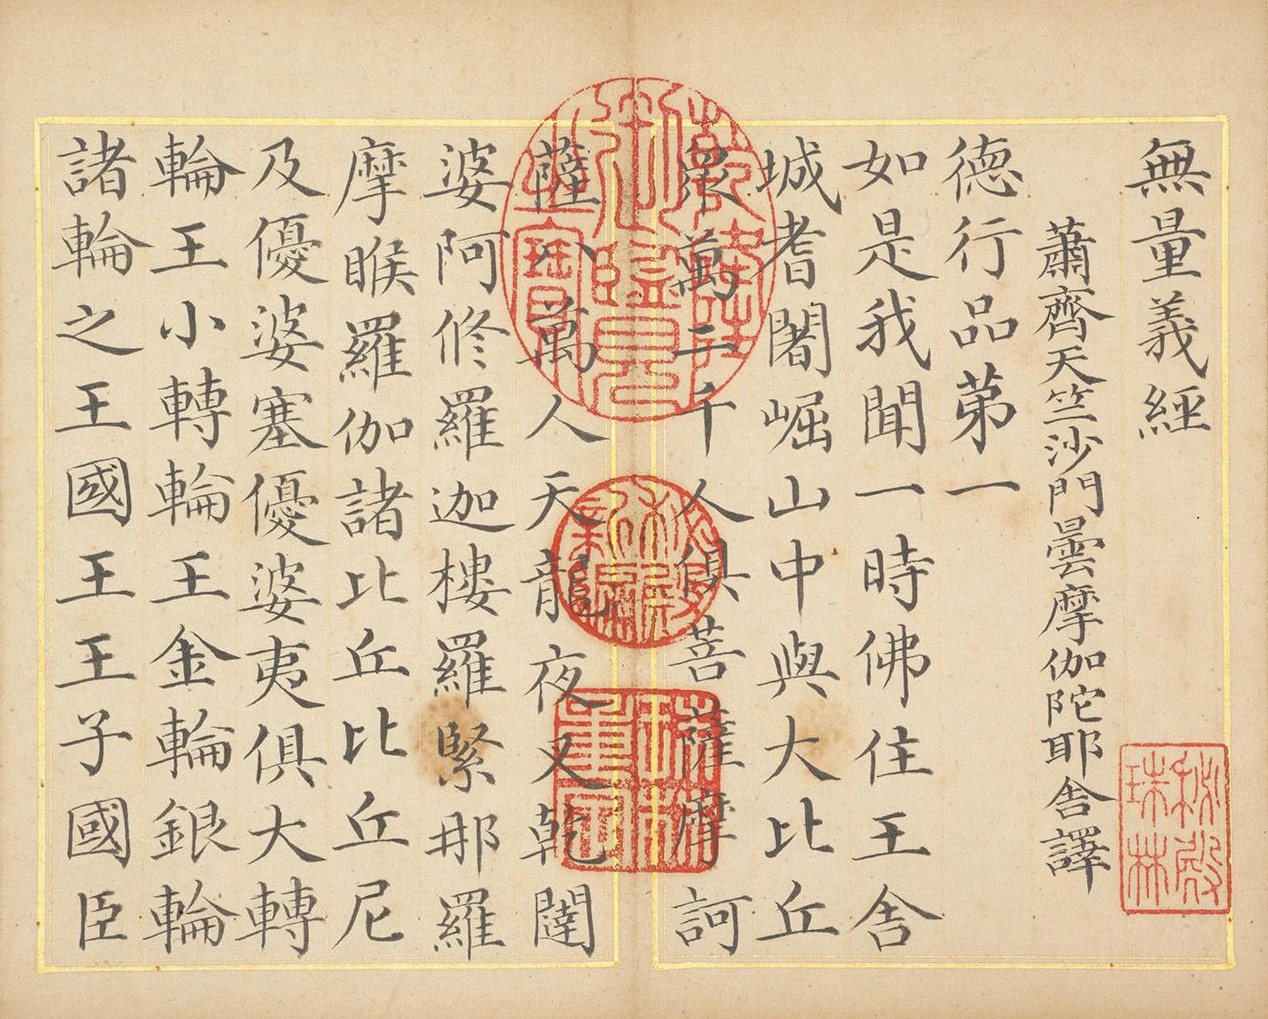 無量義經
蕭齊天竺沙門曇摩伽陀耶舍譯
德行品第一
如是我聞一時佛住王舍
城耆闍崛山中與大比丘
眾萬二千人俱菩薩摩訶
薩八萬人天龍夜叉乾闥
婆阿脩羅迦樓羅緊那羅
摩睺羅伽諸比丘比丘尼
及優婆塞優婆夷俱大轉
輪王小轉輪王金輪銀輪
諸輪之王國王王子國臣
秘殿珠林
乾隆御覽之寶
珠林重定